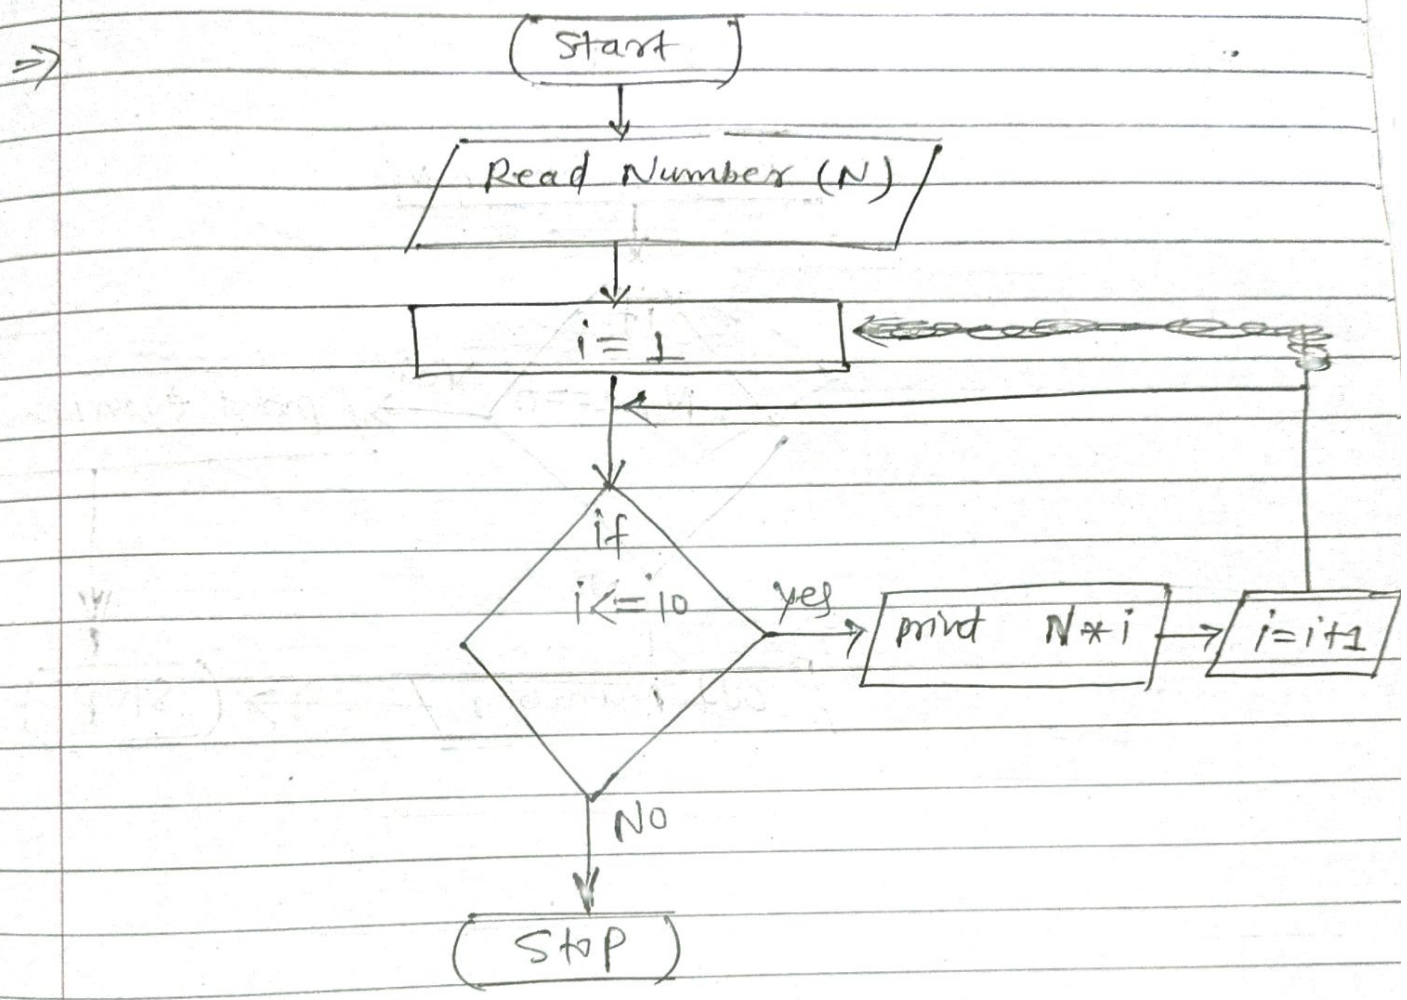 ⇒
Start
Read Number (N)
i = 1
if
i<=10
yes
print N*i
i=i+1
NO
Stop